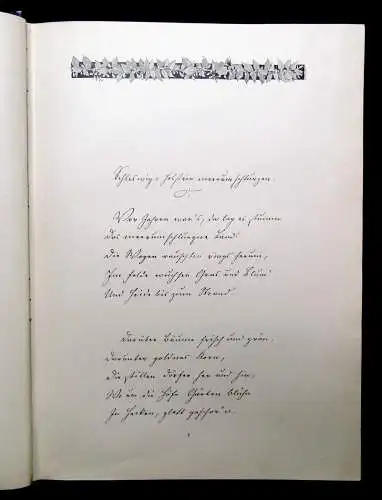 Schleswig-Holstein meerumschlungen.
Vor Jahren war's, da lag es stumm
Das meerumschlungne Land
Die Wogen rauschten rings herum,
Im Felde wuchsen Gras und Blum'
Und Heide bis zum Strand.
Darüber Bäume frisch und grün,
Darunter goldnes Korn,
Die stillen Dörfer her und hin,
Wo in die Höfe Gärten blühn
In Hecken, glatt geschor'n.